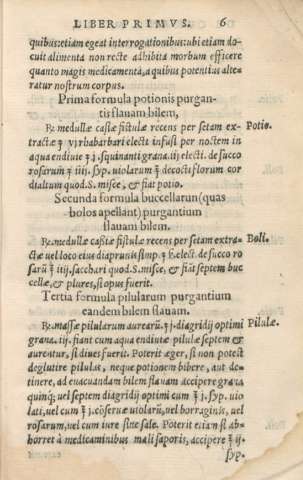 LIBER PRIMVS. 6
quibus: etiam egeat interrogationibus: ubi etiam do-
cuit alimenta non recte adhibita morbum efficere
quanto magis medicamenta, a quibus potentius alte-
ratur nostrum corpus.
Prima formula potionis purgan-
tis flauam bilem,
℞. medullæ cassiæ fistulæ recens per setam ex- Potio.
tractæ ʒ vj rhabarbari electi infusi per noctem in
in aqua endiuiæ ʒ j. squinanti grana. iij electi. de succo
rosarum ʒ iiij. syp. uiolarum ℥ j decocti florum cor
dialium quod. S. misce, & fiat potio.
Secunda formula buccellarun (quas
bolos apellant) purgantium
flauam bilem.
℞. medullæ cassiæ fistulæ recens per setam extra- Boli.
ctæ uel loco eius diaprunis simp. ℥ ß. elect. de succo ro
sarū ʒ iij. sacchari quod. S. misce, & fiāt septem buc
cellæ, & plures, si opus fuerit.
Tertia formula pilularum purgantium
eandem bilem flauam.
℞. massæ pilularum aurearū. ʒ j. diagridij optimi Pilulæ.
grana. iij. fiant cum aqua endiuiæ pilulæ septem &
aurentur, si diues fuerit. Poterit æger, si non potest
deglutire pilulas, neque potionem bibere, aut de-
tinere, ad euacuandam bilem flauam accipere grana
quinq; uel septem diagridij optimi cum ℥ j. syp. uio
lati, uel cum ℥ j. cōseruæ uiolarū, uel borraginis, uel
rosarum, uel cum iure sine sale. Poterit etiā si ab-
horret à medicaminibus mali saporis, accipere ℥ ij.
syp.